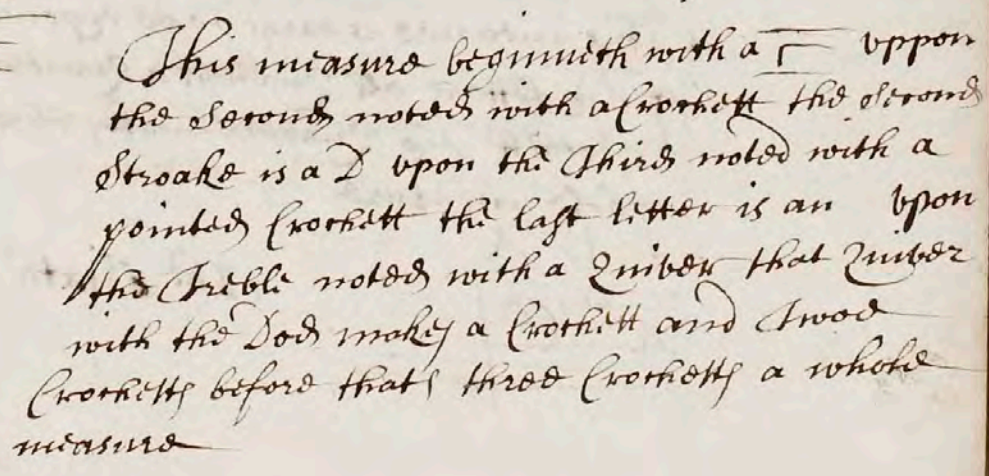 This measure beginneth with a Γ uppon
the Second noted with a Crochett the Second
Stroake is a D upon the Third noted with a
pointed Crochett the last letter is an upon
the Treble noted with a Quiver that Quiver
with the Dod makes a Crochett and Twoe
Crochetts before thats three Crochetts a whole
measure